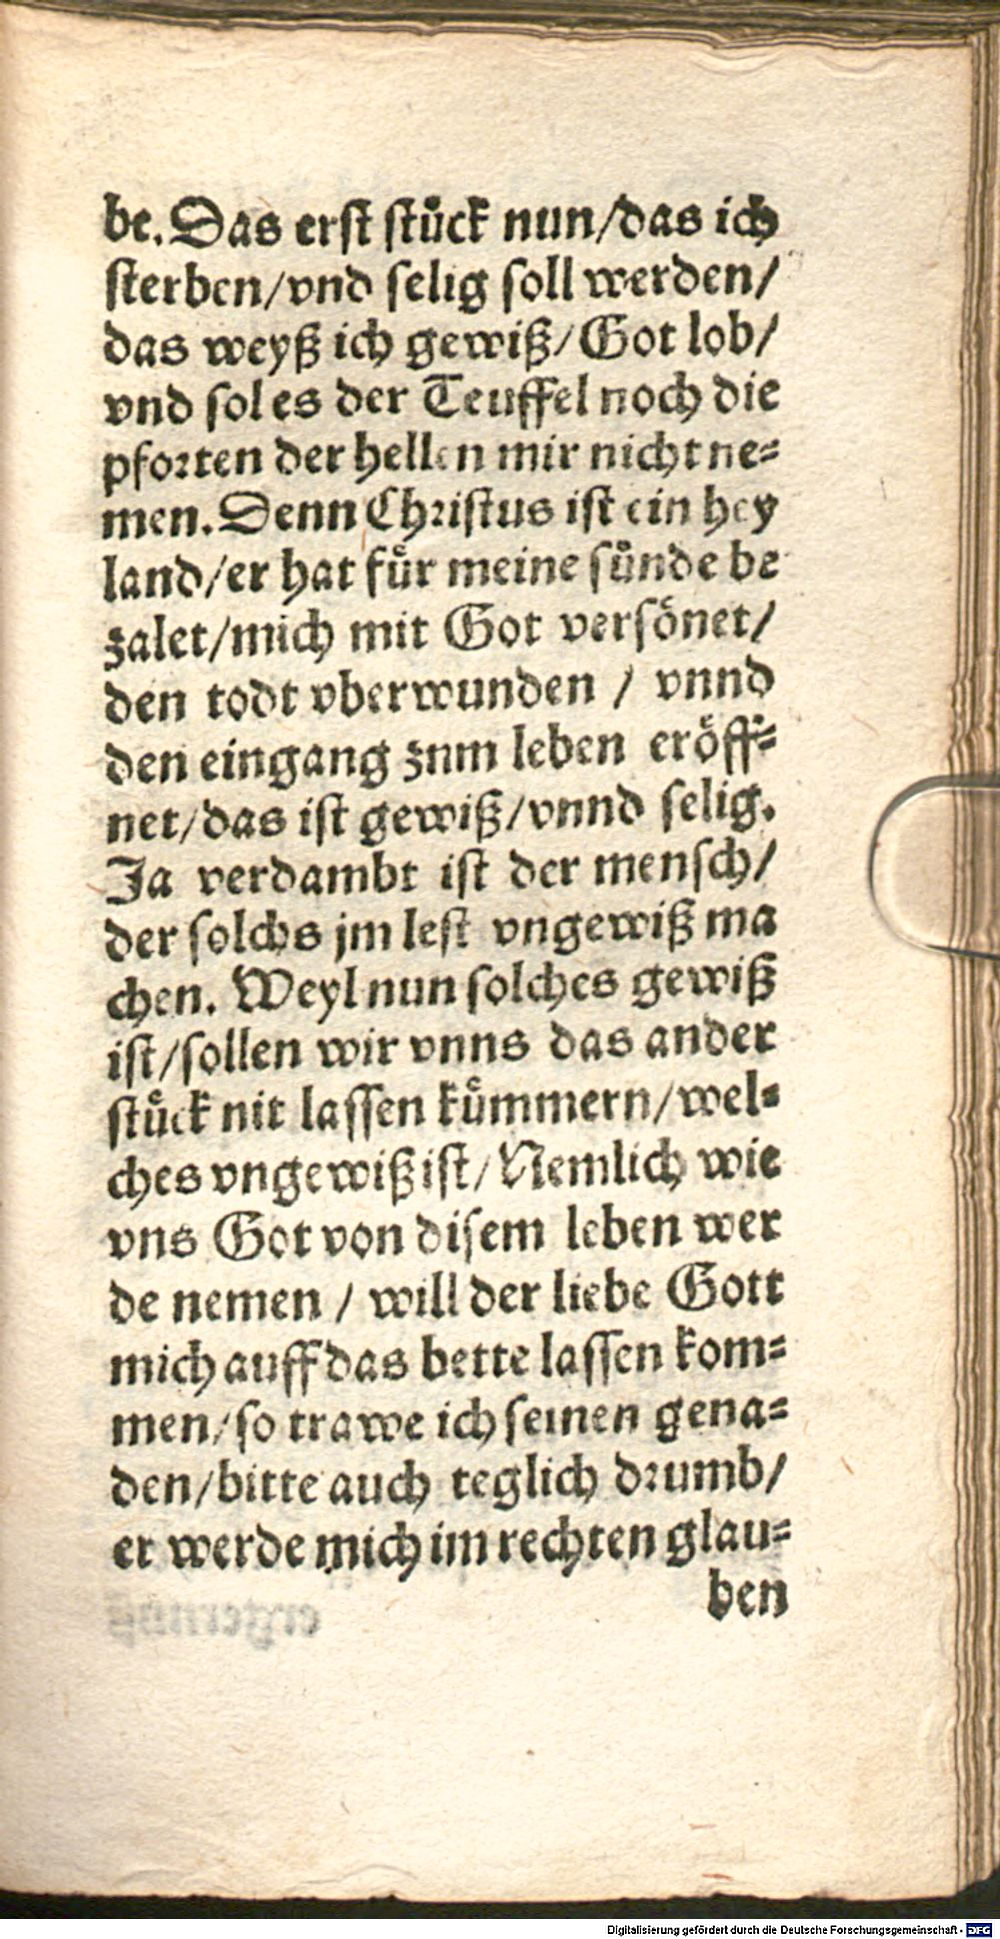 be. Das erst stuͤck nun/das ich
sterben/vnd selig soll werden/
das weyß ich gewiß/Got lob/
vnd sol es der Teuffel noch die
pforten der hellen mir nicht ne⸗
men. Denn Christus ist ein hey
land/er hat fuͤr meine suͤnde be
zalet/mich mit Got versönet/
den todt vberwunden / vnnd
den eingang znm leben eröff⸗
net/das ist gewiß/vnnd selig.
Ja verdambt ist der mensch/
der solchs jm lest vngewiß ma
chen. Weyl nun solches gewiß
ist/sollen wir vnns das ander
stuͤck nit lassen kuͤmmern/wel⸗
ches vngewiß ist/Nemlich wie
vns Got von disem leben wer
de nemen / will der liebe Gott
mich auff das bette lassen kom⸗
men/so trawe ich seinen gena⸗
den/bitte auch teglich drumb/
er werde mich im rechten glau⸗
ben
Digitalisierung gefördert durch die Deutsche Forschungsgemeinschaft - DFG